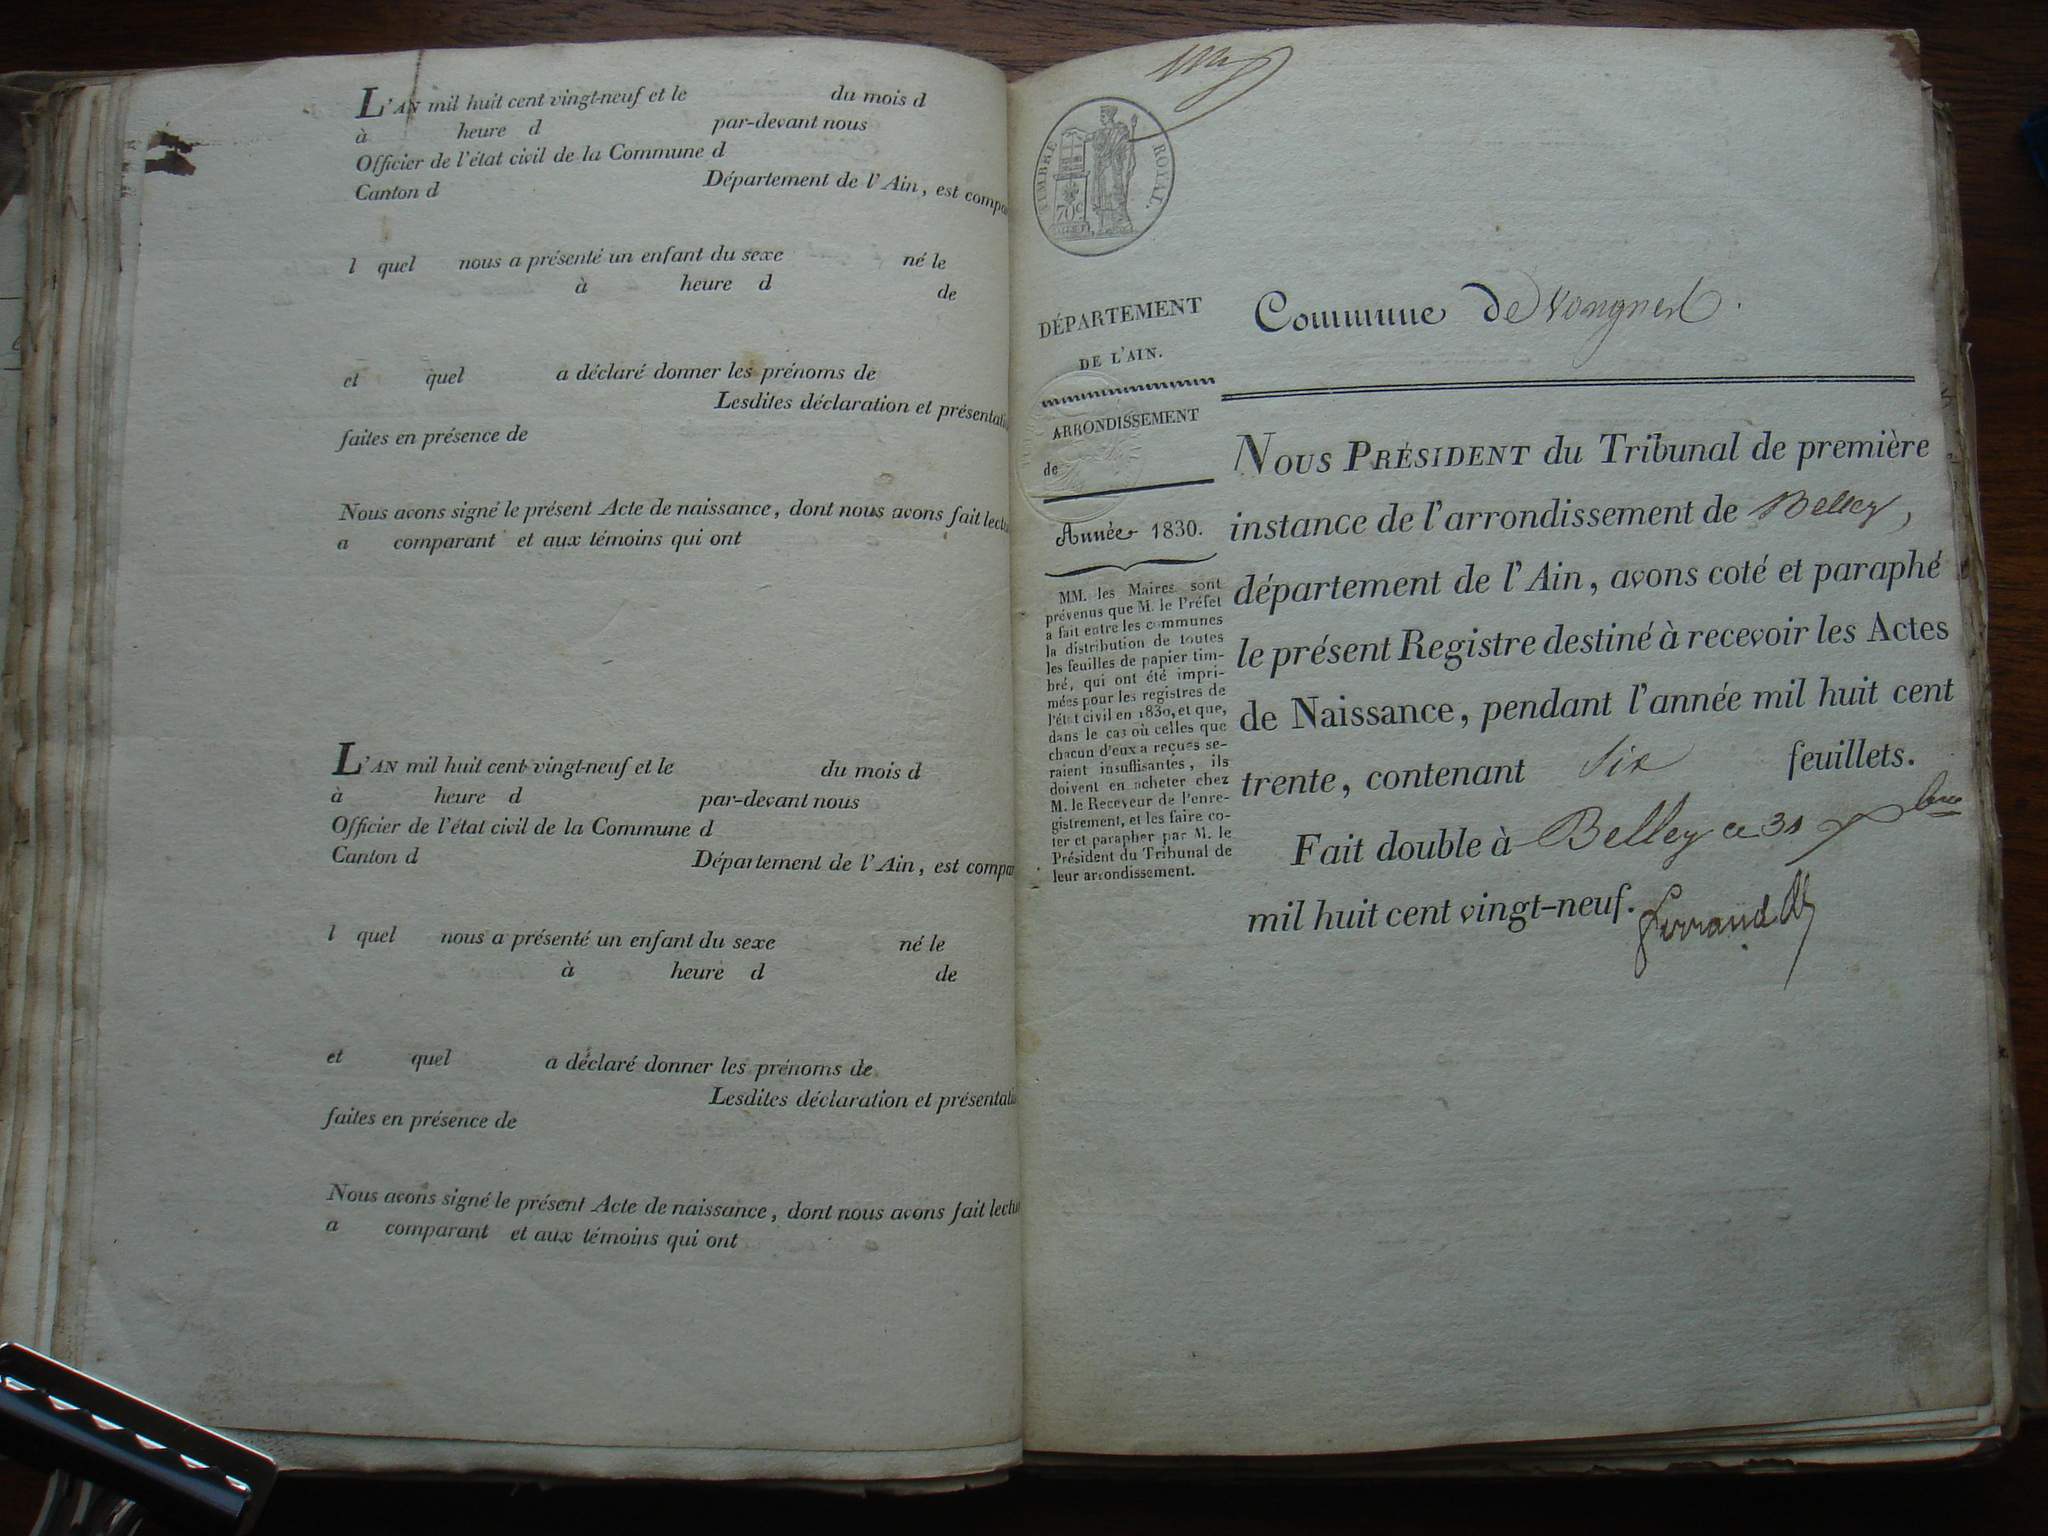 L'AN mil huit cent vingt-neuf et le du mois d
à heure d par-devant nous
Officier de l'état civil de la Commune d
Canton d Département de l'Ain, est compa
l quel nous a présenté un enfant du sexe né le
à heure d de
et quel a déclaré donner les prénoms de
Lesdites déclaration et présentati
faites en présence de
Nous avons signé le présent Acte de naissance, dont nous avons fait lectu
a comparant et aux témoins qui ont
L'AN mil huit cent vingt-neuf et le du mois d
à heure d par-devant nous
Officier de l'état civil de la Commune d
Canton d Département de l'Ain, est compar
l quel nous a présenté un enfant du sexe né le
à heure d de
et quel a déclaré donner les prénoms de
Lesdites déclaration et présentati
faites en présence de
Nous avons signé le présent Acte de naissance, dont nous avons fait lectu
a comparant et aux témoins qui ont
TIMBRE ROYAL.
70c
DÉPARTEMENT
DE L'AIN.
ARRONDISSEMENT
de
Année 1830.
MM. les Maires sont
prévenus que M. le Préfet
a fait entre les communes
la distribution de toutes
les feuilles de papier tim-
bré, qui ont été impri-
mées pour les registres de
l'état civil en 1830, et que,
dans le cas où celles que
chacun d'eux a reçues se-
raient insuffisantes, ils
doivent en acheter chez
M. le Receveur de l'enre-
gistrement, et les faire co-
ter et parapher par M. le
Président du Tribunal de
leur arrondissement.
Commune de Vongnes
NOUS PRÉSIDENT du Tribunal de première
instance de l'arrondissement de Belley,
département de l'Ain, avons coté et paraphé
le présent Registre destiné à recevoir les Actes
de Naissance, pendant l'année mil huit cent
trente, contenant six feuillets.
Fait double à Belley ce 31 Xbre
mil huit cent vingt-neuf.